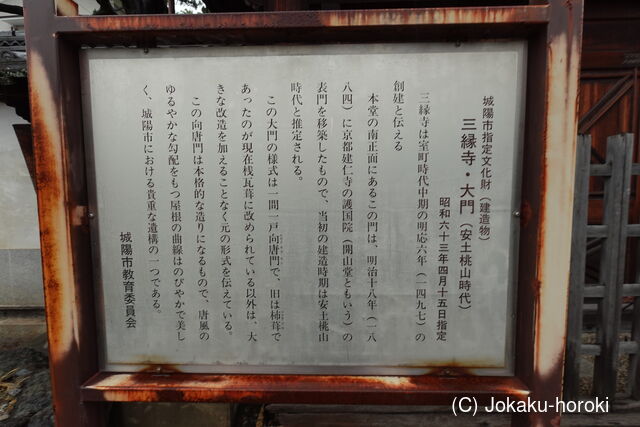 城陽市指定文化財（建造物）
三縁寺・大門（安土桃山時代）
昭和六十三年四月十五日指定
三縁寺は室町時代中期の明応六年（一四九七）の
創建と伝える
本堂の南正面にあるこの門は、明治十八年（一八
八四）に京都建仁寺の護国院（開山堂ともいう）の
表門を移築したもので、当初の建造時期は安土桃山
時代と推定される。
この大門の様式は一間一戸向唐門で、旧は柿葺で
あったのが現在桟瓦葺に改められている以外は、大
きな改造を加えることなく元の形式を伝えている。
この向唐門は本格的な造りになるもので、唐風の
ゆるやかな勾配をもつ屋根の曲線はのびやかで美し
く、城陽市における貴重な遺構の一つである。
城陽市教育委員会
(C) Jokaku-horoki